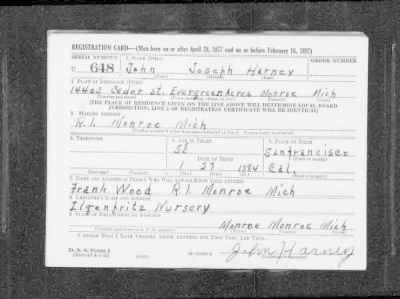 REGISTRATION CARD—(Men born on or after April 28, 1877 and on or before February 16, 1897)
SERIAL NUMBER 1. NAME (Print) ORDER NUMBER
U 648 John Joseph Harney
2. PLACE OF RESIDENCE (Print)
14403 Ceder st. Evergreenacres Monroe Mich
(THE PLACE OF RESIDENCE GIVEN ON THE LINE ABOVE WILL DETERMINE LOCAL BOARD
JURISDICTION; LINE 2 OF REGISTRATION CERTIFICATE WILL BE IDENTICAL)
3. MAILING ADDRESS
R.1. Monroe Mich
4. TELEPHONE 5. AGE IN YEARS 6. PLACE OF BIRTH
Sanfrancisco
DATE OF BIRTH
1 27 1894 Cal.
7. NAME AND ADDRESS OF PERSON WHO WILL ALWAYS KNOW YOUR ADDRESS
Frank Wood R.1. Monroe Mich
8. EMPLOYER'S NAME AND ADDRESS
Ilgenfritz Nursery
9. PLACE OF EMPLOYMENT OR BUSINESS
Monroe Monroe Mich
I AFFIRM THAT I HAVE VERIFIED ABOVE ANSWERS AND THAT THEY ARE TRUE.
D. S. S. Form 1
John Harney